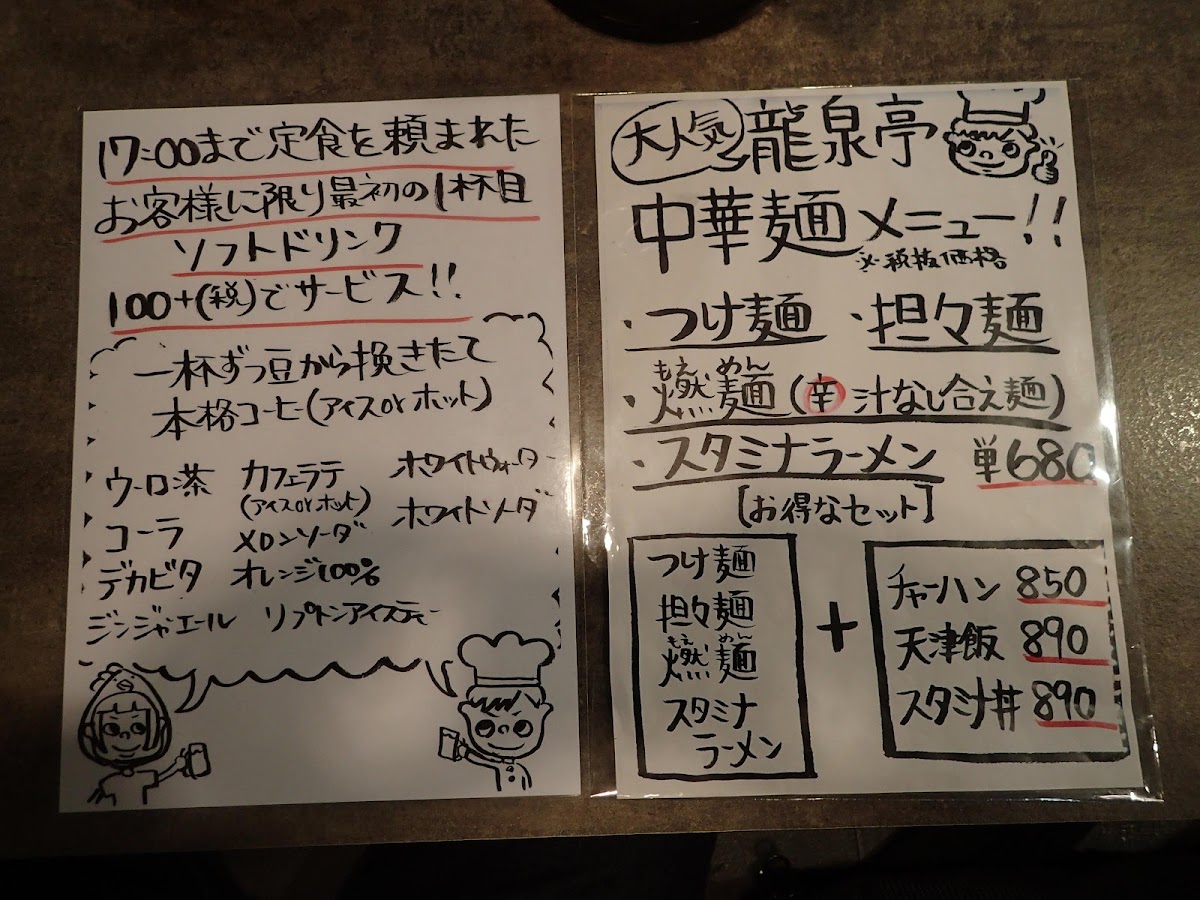 17:00まで定食を頼まれた
お客様に限り最初の1杯目
ソフトドリンク
100+(税)でサービス!!
一杯ずつ豆から挽きたて
本格コーヒー(アイスorホット)
ウーロン茶 カフェラテ ホワイトウォーター
(アイスorホット)
コーラ メロンソーダ ホワイトソーダ
デカビタ オレンジ100%
ジンジャエール リプトンアイスティー
大人気 龍泉亭
中華麺メニュー!!
※税抜価格
・つけ麺 ・担々麺
もえ めん
・燃麺(辛 汁なし合え麺)
・スタミナラーメン 単680
[お得なセット]
つけ麺
担々麺
もえ めん
燃麺
スタミナ
ラーメン
+
チャーハン 850
天津飯 890
スタミナ丼 890